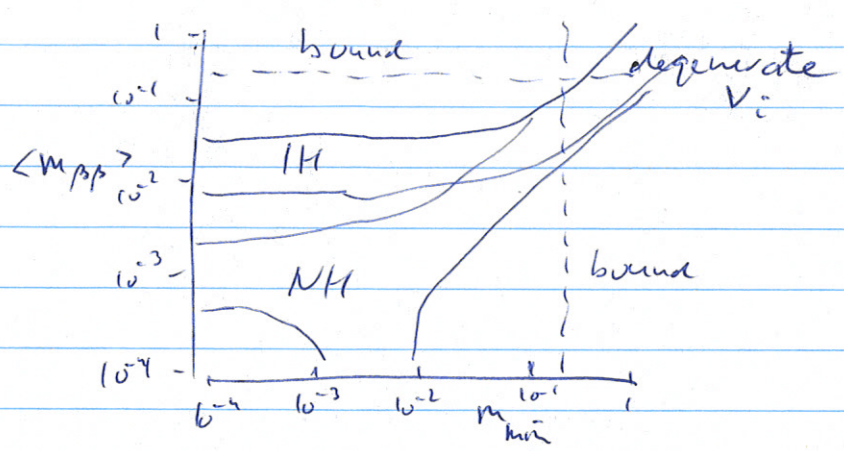 1
bound
degenerate
10⁻¹
ν_i
IH
<m_ββ>
10⁻²
10⁻³
NH
bound
10⁻⁴
10⁻⁴ 10⁻³ 10⁻² 10⁻¹ 1
m_min